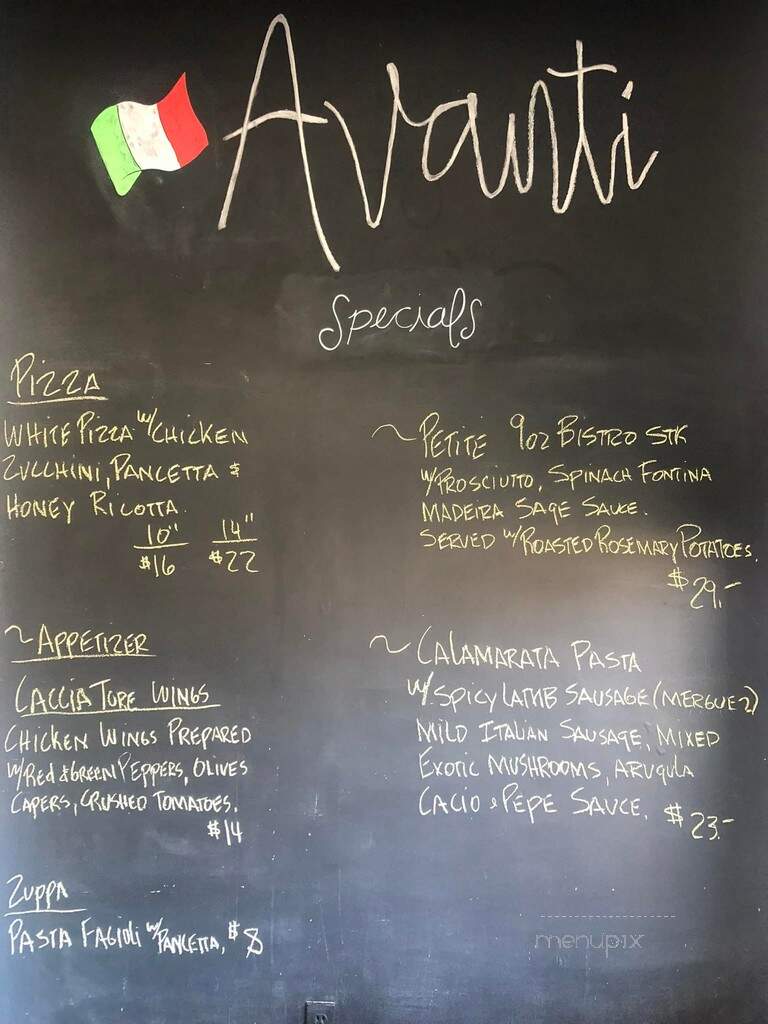 Avanti
Specials
Pizza
White Pizza w/ Chicken
Zucchini, Pancetta &
Honey Ricotta.
10" 14"
$16 $22
~ Appetizer
Cacciatore Wings
Chicken Wings Prepared
w/ Red & Green Peppers, Olives
Capers, Crushed Tomatoes.
$14
Zuppa
Pasta Fagioli w/ Pancetta, $8
~ Petite 9oz Bistro Stk
w/ Prosciutto, Spinach Fontina
Madeira Sage Sauce.
Served w/ Roasted Rosemary Potatoes.
$29.-
~ Calamarata Pasta
w/ Spicy Lamb Sausage (Merguez)
Mild Italian Sausage, Mixed
Exotic Mushrooms, Arugula
Cacio e Pepe Sauce. $23.-
menupix